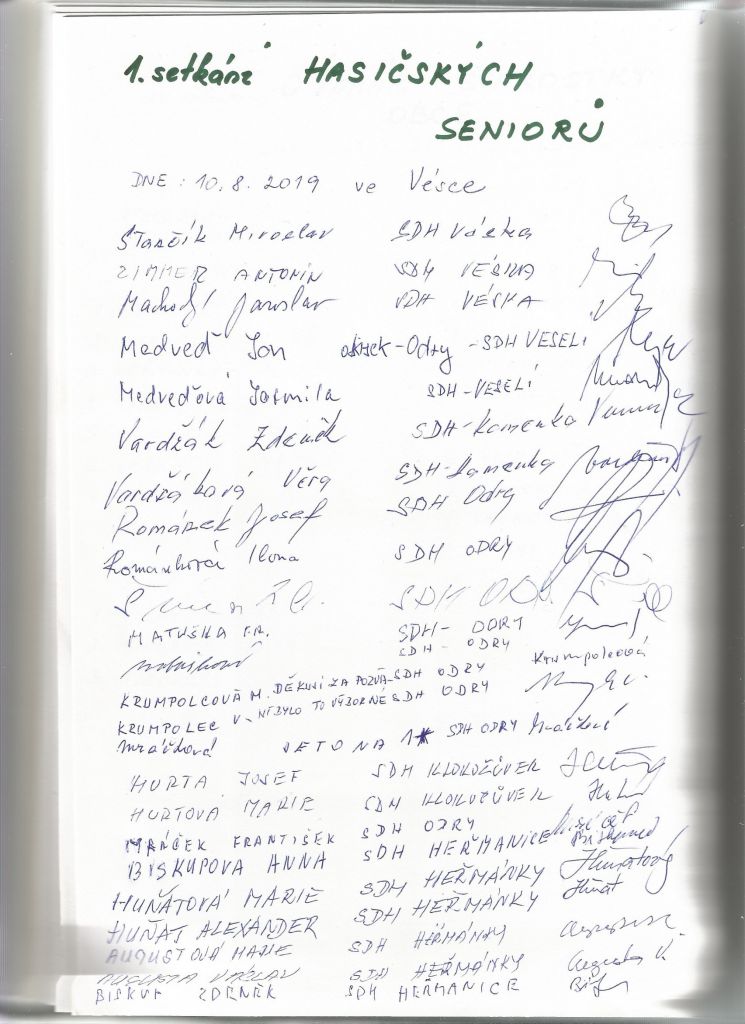 1. setkání HASIČSKÝCH
SENIORŮ
DNE: 10.8. 2019 ve Vésce
Stančík Miroslav SDH Véska
ZIMMER ANTONÍN SDH VÉSKA
Jaroslav SDH VÉSKA
Medveď Jan okrsek-Odry - SDH VESELÍ
Medveďová Jarmila SDH-VESELÍ
Vardžák Zdeněk SDH-Kamenka
Vardžáková Věra SDH-Kamenka
Románek Josef SDH Odry
Románková Ilona SDH ODRY
SDH
MATUŠKA FR. SDH- ODRY
SDH- ODRY
KRUMPOLCOVÁ M. DĚKUJI ZA POZVÁ- SDH ODRY Krumpolcová
KRUMPOLEC V. NÍ BYLO TO VÝBORNÉ SDH ODRY
Mráčková JE TO NA 1* SDH ODRY Mráčková
HURTA JOSEF SDH KLOKOČŮVEK
HURTOVÁ MARIE SDH KLOKOČŮVEK
MRÁČEK FRANTIŠEK SDH ODRY
BISKUPOVA ANNA SDH HEŘMANICE
HUŇATOVÁ MARIE SDH HEŘMÁNKY Huňatová
HUŇAT ALEXANDER SDH HEŘMÁNKY Huňat
AUGUSTOVÁ MARIE SDH HEŘMÁNKY
AUGUSTA VÁCLAV SDH HEŘMÁNKY Augusta V.
BISKUP ZDENĚK SDH HEŘMANICE